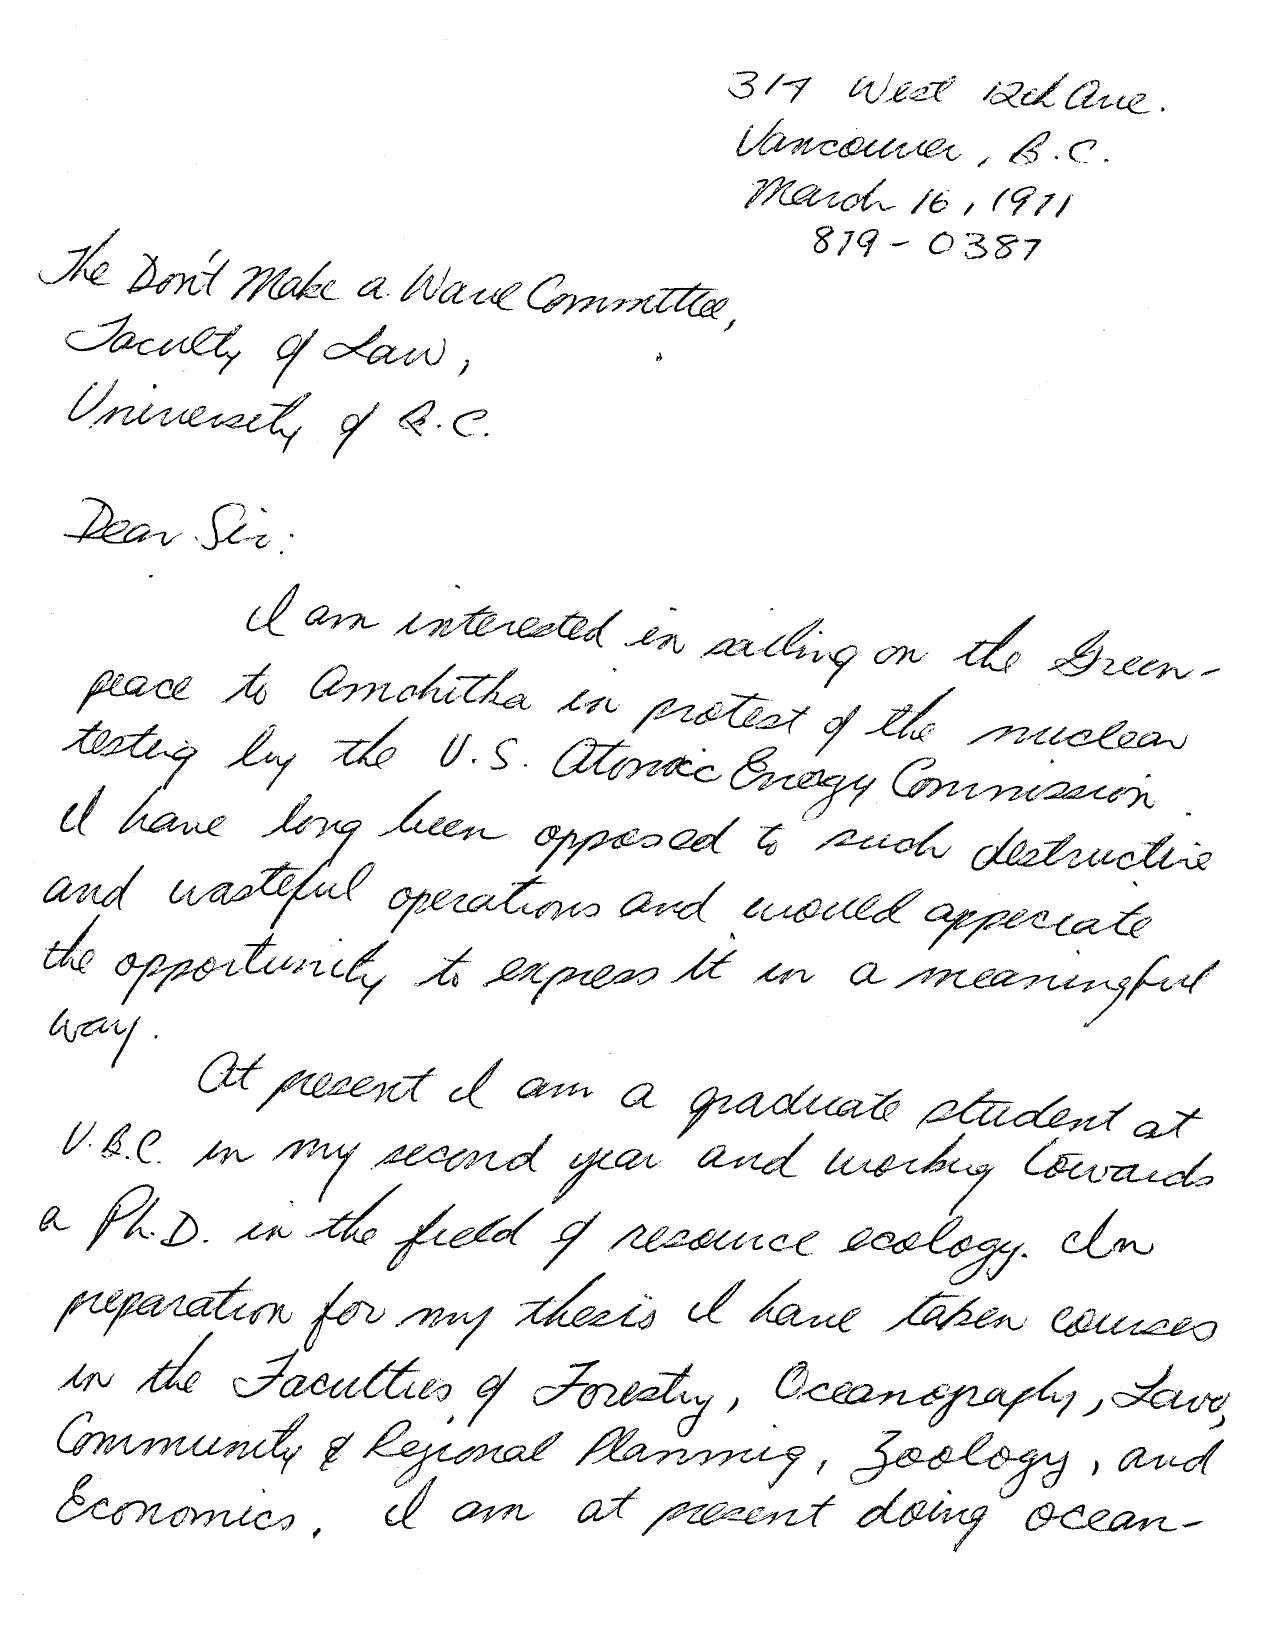 317 West 12th Ave.
Vancouver, B.C.
March 16, 1971
879-0387
The Don't Make a Wave Committee,
Faculty of Law,
University of B.C.
Dear Sir:
I am interested in sailing on the Green-
peace to Amchitka in protest of the nuclear
testing by the U.S. Atomic Energy Commission.
I have long been opposed to such destructive
and wasteful operations and would appeciate
the opportunity to express it in a meaningful
way.
At present I am a graduate student at
U.B.C. in my second year and working towards
a Ph.D. in the field of resource ecology. In
preparation for my thesis I have taken courses
in the Faculties of Forestry, Oceanography, Law,
Community & Regional Planning, Zoology, and
Economics. I am at present doing ocean-